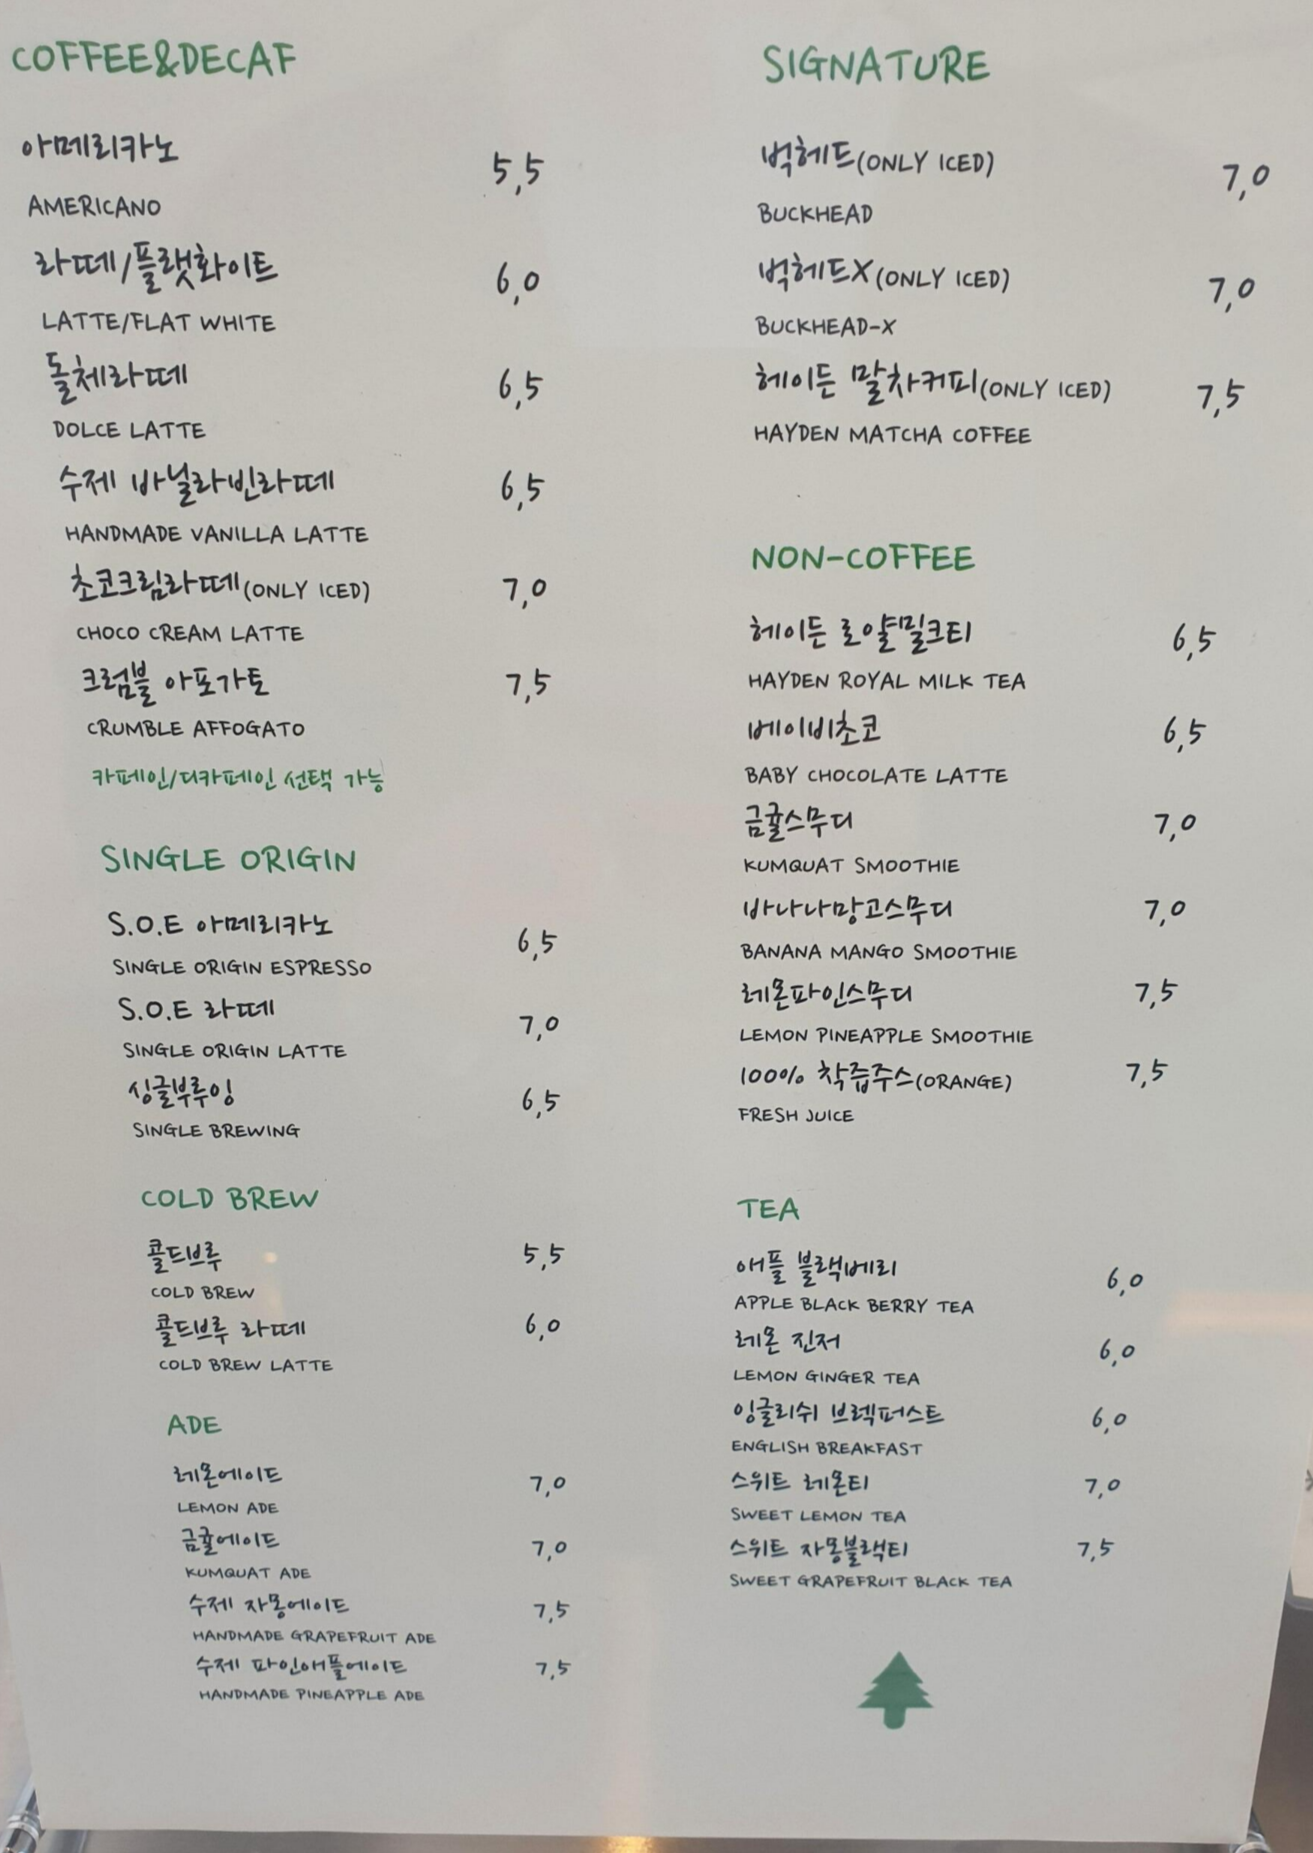 COFFEE&DECAF
아메리카노
5,5
AMERICANO
라떼/플랫화이트
6,0
LATTE/FLAT WHITE
돌체라떼
6,5
DOLCE LATTE
수제 바닐라빈라떼
6,5
HANDMADE VANILLA LATTE
초코크림라떼(ONLY ICED)
7,0
CHOCO CREAM LATTE
크럼블 아포가토
7,5
CRUMBLE AFFOGATO
카페인/디카페인 선택 가능
SINGLE ORIGIN
S.O.E 아메리카노
6,5
SINGLE ORIGIN ESPRESSO
S.O.E 라떼
7,0
SINGLE ORIGIN LATTE
싱글부루잉
6,5
SINGLE BREWING
COLD BREW
콜드브루
5,5
COLD BREW
콜드브루 라떼
6,0
COLD BREW LATTE
ADE
레몬에이드
7,0
LEMON ADE
금귤에이드
7,0
KUMQUAT ADE
수제 자몽에이드
7,5
HANDMADE GRAPEFRUIT ADE
수제 파인애플에이드
7,5
HANDMADE PINEAPPLE ADE
SIGNATURE
벅헤드(ONLY ICED)
7,0
BUCKHEAD
벅헤드X(ONLY ICED)
7,0
BUCKHEAD-X
헤이든 말차커피(ONLY ICED)
7,5
HAYDEN MATCHA COFFEE
NON-COFFEE
헤이든 로얄밀크티
6,5
HAYDEN ROYAL MILK TEA
베이비초코
6,5
BABY CHOCOLATE LATTE
금귤스무디
7,0
KUMQUAT SMOOTHIE
바나나망고스무디
7,0
BANANA MANGO SMOOTHIE
레몬파인스무디
7,5
LEMON PINEAPPLE SMOOTHIE
100% 착즙주스(ORANGE)
7,5
FRESH JUICE
TEA
애플 블랙베리
6,0
APPLE BLACK BERRY TEA
레몬 진저
6,0
LEMON GINGER TEA
잉글리쉬 브렉퍼스트
6,0
ENGLISH BREAKFAST
스위트 레몬티
7,0
SWEET LEMON TEA
스위트 자몽블랙티
7,5
SWEET GRAPEFRUIT BLACK TEA